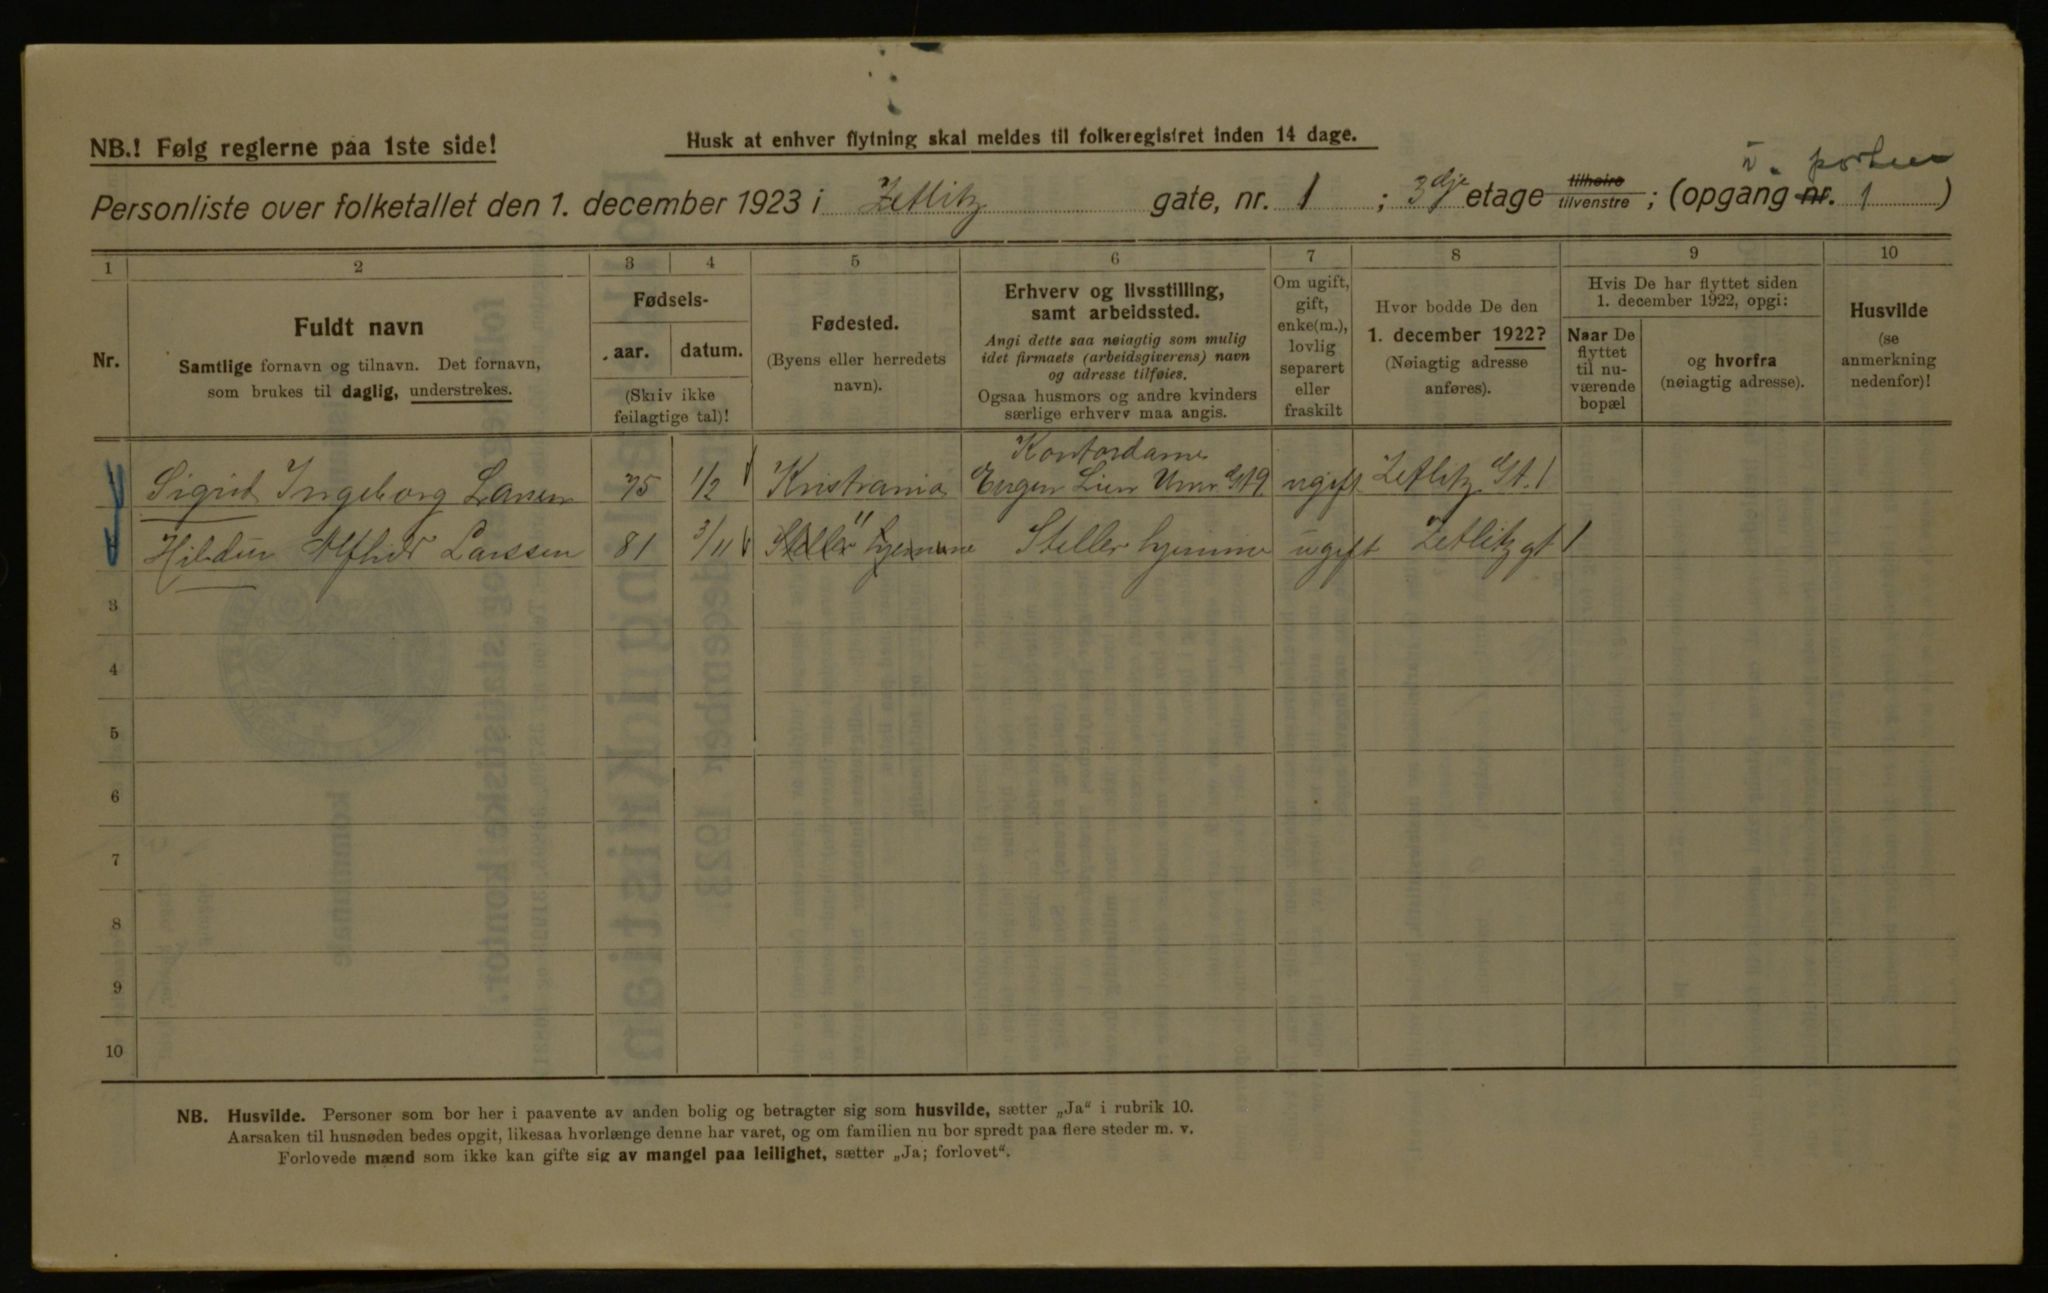 NB.! Følg reglerne paa 1ste side!
Husk at enhver flytning skal meldes til folkeregistret inden 14 dage.
porten
Personliste over folketallet den 1. december 1923 i Zetlitz gate, nr. 1 ; 3dje etage tilhøire tilvenstre ; (opgang nr. 1 )
1 2 3 4 5 6 7 8 9 10
Nr.
Fuldt navn
Samtlige fornavn og tilnavn. Det fornavn,
som brukes til daglig, understrekes.
Fødsels-
aar. datum.
(Skriv ikke
feilagtige tal)!
Fødested.
(Byens eller herredets
navn).
Erhverv og livsstilling,
samt arbeidssted.
Angi dette saa nøiagtig som mulig
idet firmaets (arbeidsgiverens) navn
og adresse tilføies.
Ogsaa husmors og andre kvinders
særlige erhverv maa angis.
Om ugift,
gift,
enke(m.),
lovlig
separert
eller
fraskilt
Hvor bodde De den
1. december 1922?
(Nøiagtig adresse
anføres).
Hvis De har flyttet siden
1. december 1922, opgi:
Naar De
flyttet
til nu-
værende
bopæl
og hvorfra
(nøiagtig adresse).
Husvilde
(se
anmerkning
nedenfor)!
Kontordame
Sigrid Ingeborg Larsen 75 1/2 Kristiania Eugen Lien gt 9 ugift Zetlitz Gt. 1
Hildur Alfhild Larssen 81 3/11 " Steller hjemme Steller hjemme ugift Zetlitz gt 1
3
4
5
6
7
8
9
10
NB. Husvilde. Personer som bor her i paavente av anden bolig og betragter sig som husvilde, sætter „Ja“ i rubrik 10.
Aarsaken til husnøden bedes opgit, likesaa hvorlænge denne har varet, og om familien nu bor spredt paa flere steder m. v.
Forlovede mænd som ikke kan gifte sig av mangel paa leilighet, sætter „Ja; forlovet“.